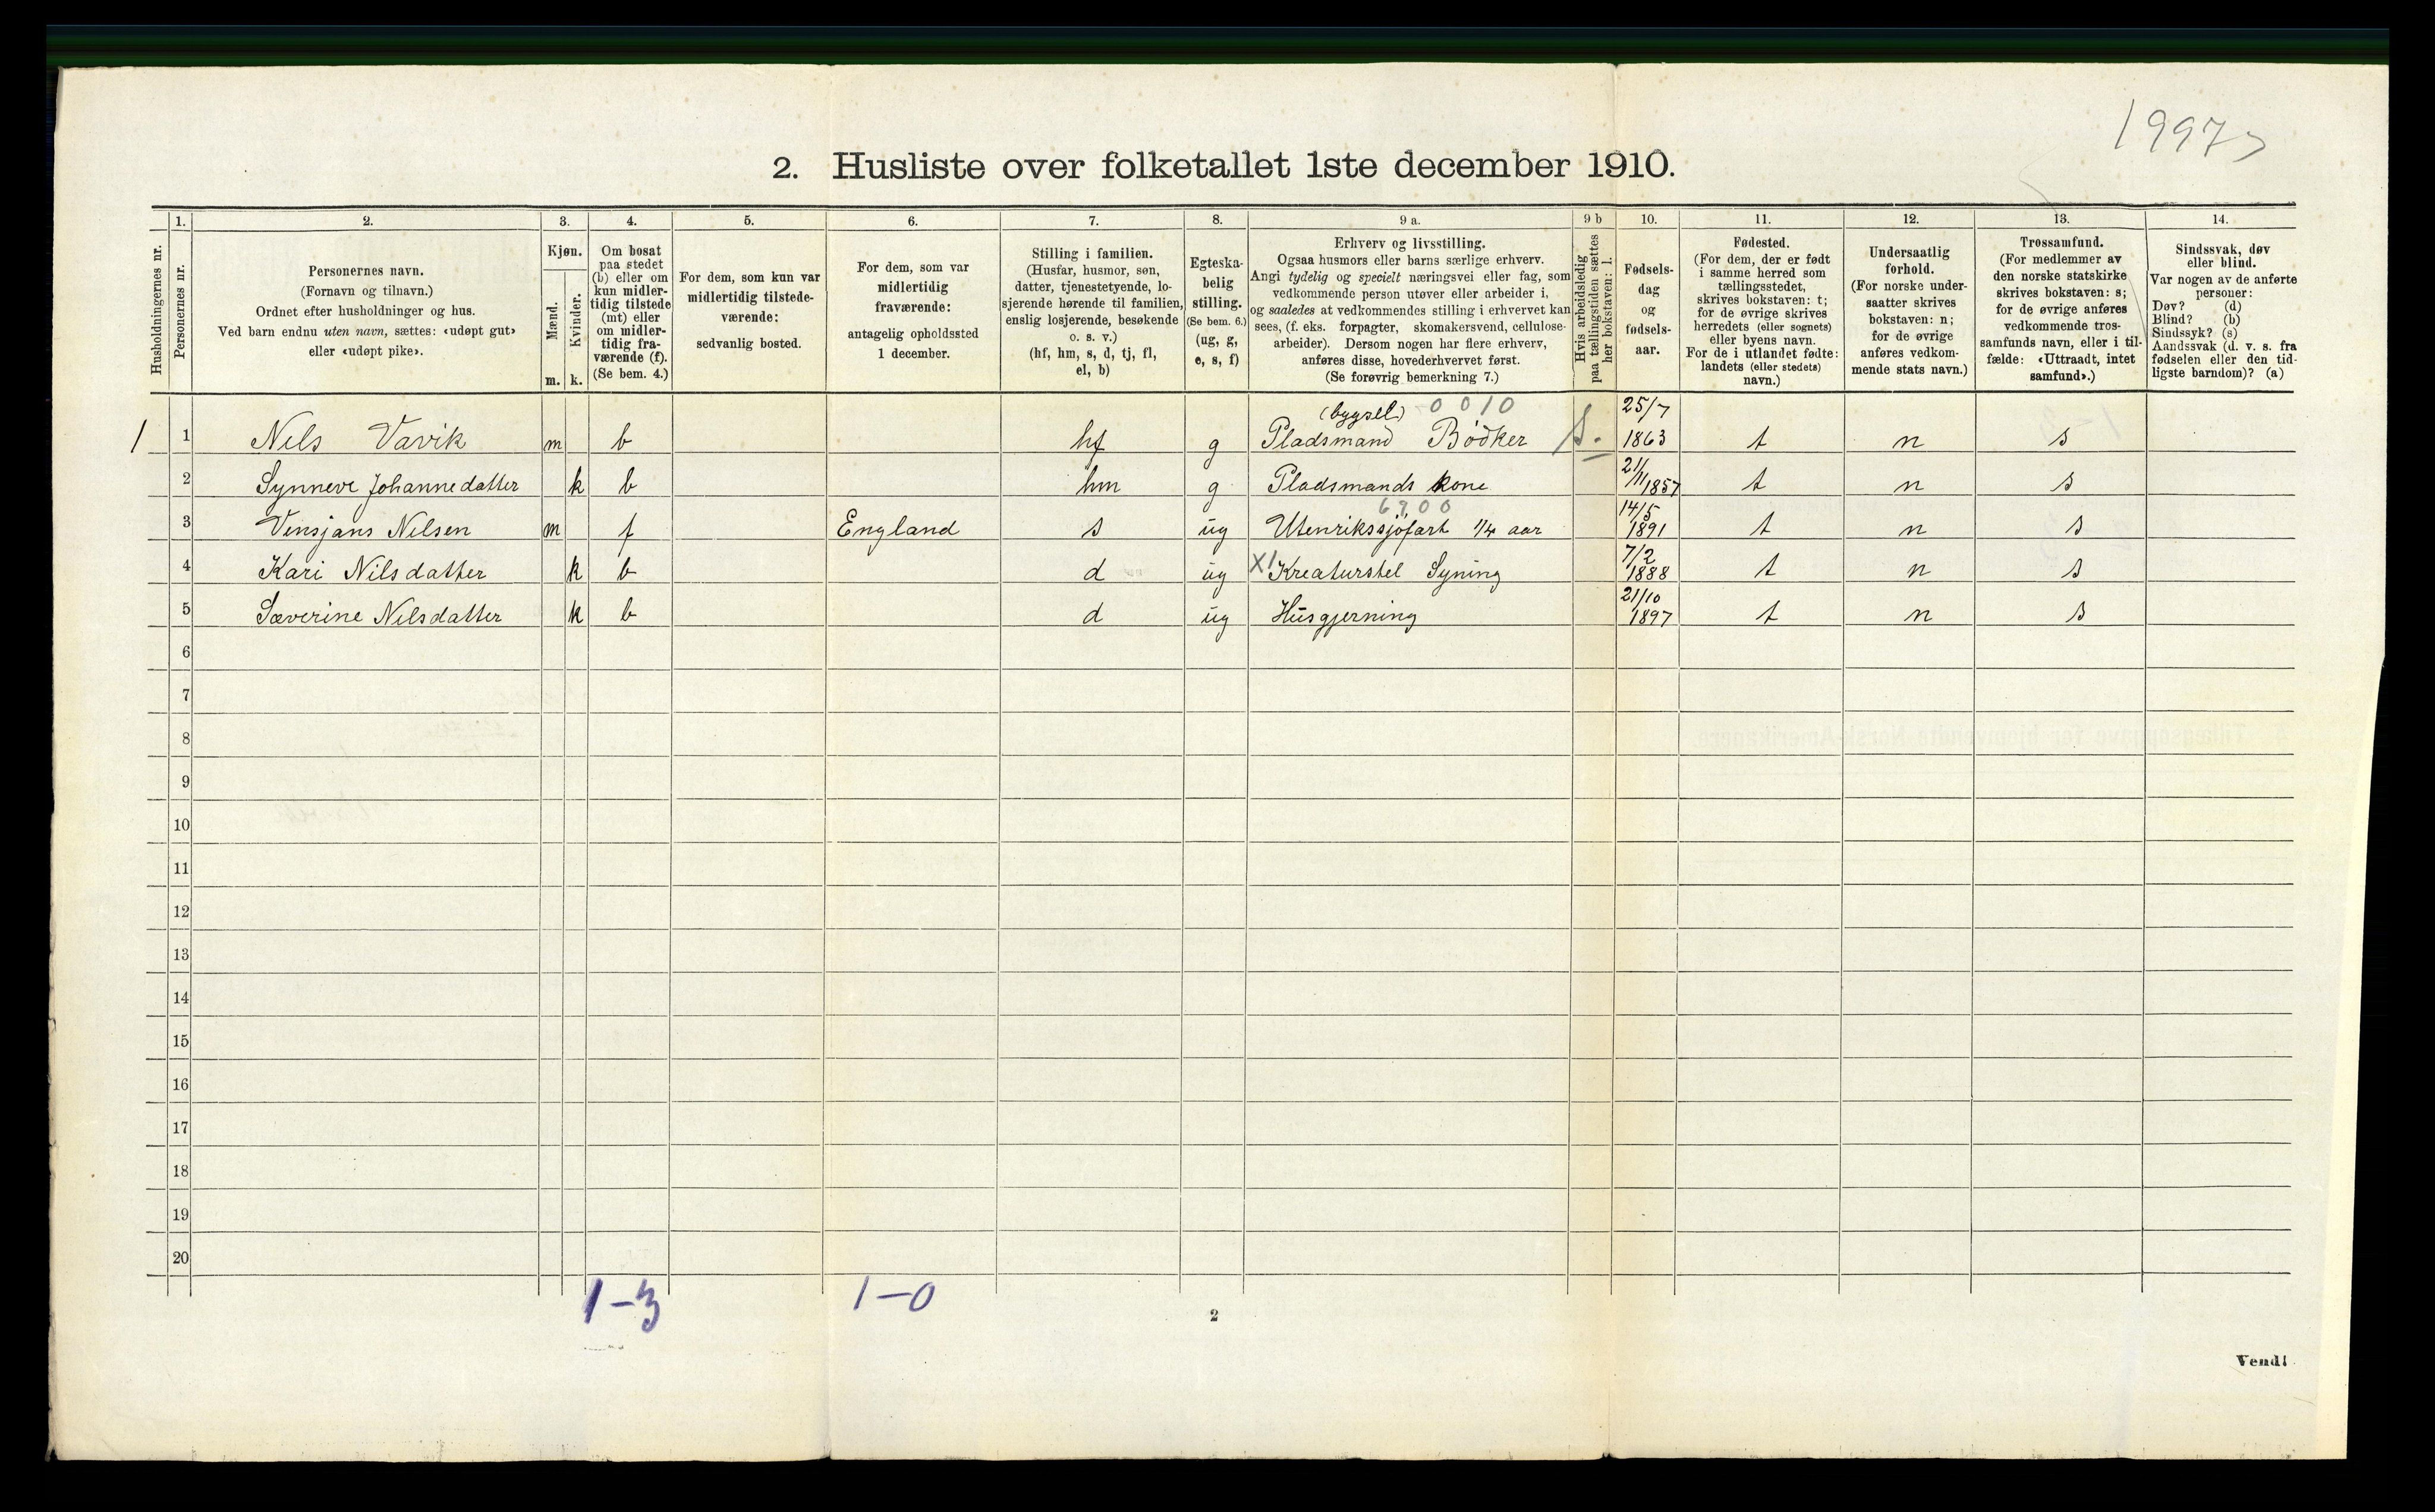 19977
2. Husliste over folketallet 1ste december 1910.
1. 2. 3. 4. 5. 6. 7. 8. 9 a. 9 b 10. 11. 12. 13. 14.
Husholdningernes nr.
Personernes nr.
Personernes navn.
(Fornavn og tilnavn.)
Ordnet efter husholdninger og hus.
Ved barn endnu uten navn, sættes: «udøpt gut»
eller «udøpt pike».
Kjøn.
Mænd.
Kvinder.
m. k.
Om bosat
paa stedet
(b) eller om
kun midler-
tidig tilstede
(mt) eller
om midler-
tidig fra-
værende (f).
(Se bem. 4.)
For dem, som kun var
midlertidig tilstede-
værende:
sedvanlig bosted.
For dem, som var
midlertidig
fraværende:
antagelig opholdssted
1 december.
Stilling i familien.
(Husfar, husmor, søn,
datter, tjenestetyende, lo-
sjerende hørende til familien,
enslig losjerende, besøkende
o. s. v.)
(hf, hm, s, d, tj, fl,
el, b)
Egteska-
belig
stilling.
(Se bem. 6.)
(ug, g,
e, s, f)
Erhverv og livsstilling.
Ogsaa husmors eller barns særlige erhverv.
Angi tydelig og specielt næringsvei eller fag, som
vedkommende person utøver eller arbeider i,
og saaledes at vedkommendes stilling i erhvervet kan
sees, (f. eks. forpagter, skomakersvend, cellulose-
arbeider). Dersom nogen har flere erhverv,
anføres disse, hovederhvervet først.
(Se forøvrig bemerkning 7.)
Hvis arbeidsledig
paa tællingstiden sættes
her bokstaven: l.
Fødsels-
dag
og
fødsels-
aar.
Fødested.
(For dem, der er født
i samme herred som
tællingsstedet,
skrives bokstaven: t;
for de øvrige skrives
herredets (eller sognets)
eller byens navn.
For de i utlandet fødte:
landets (eller stedets)
navn.)
Undersaatlig
forhold.
(For norske under-
saatter skrives
bokstaven: n;
for de øvrige
anføres vedkom-
mende stats navn.)
Trossamfund.
(For medlemmer av
den norske statskirke
skrives bokstaven: s;
for de øvrige anføres
vedkommende tros-
samfunds navn, eller i til-
fælde: «Uttraadt, intet
samfund».)
Sindssvak, døv
eller blind.
Var nogen av de anførte
personer:
Døv? (d)
Blind? (b)
Sindssyk? (s)
Aandssvak (d. v. s. fra
fødselen eller den tid-
ligste barndom)? (a)
(bygsel) 0 0 1 0 25/7
1 1 Nils Vavik m b hf g Pladsmand Bødker S. 1863 t n s
2 Synneve Johannedatter k b hm g Pladsmands kone 21/11 1857 t n s
6 9 0 0
3 Vensjans Nilsen m f England s ug Utenrikssjøfart 1/4 aar 14/5 1891 t n s
4 Kari Nilsdatter k b d ug X1 Kreaturstel Syning 7/2 1888 t n s
5 Sæverine Nilsdatter k b d ug Husgjerning 21/10 1897 t n s
6
7
8
9
10
11
12
13
14
15
16
17
18
19
20
1-3 1-0
2
Vend!